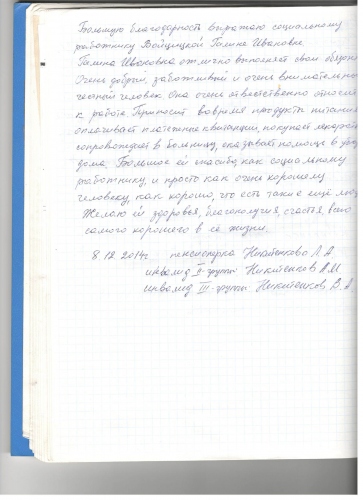 Большую благодарность выражаю социальному
работнику Войцицкой Галине Ивановне.
Галина Ивановна отлично выполняет свои
Очень добрый, заботливый и очень внимательно
честный человек. Она очень ответственно относит
к работе. Приносит вовремя продукты питания
оплачивает платежные квитанции, покупает лекарств
сопровождает в больницу, оказывает помощь в
дома. Большое ей спасибо, как социальному
работнику, и просто как очень хорошему
человеку, как хорошо, что есть такие ещё люд
Желаю ей здоровья, благополучия, счастья, всего
самого хорошего в её жизни.
8.12.2014г. пенсионерка Никитенкова Л.А
инвалид II-группы Никитенков А.М
инвалид III-группы Никитенков В.А